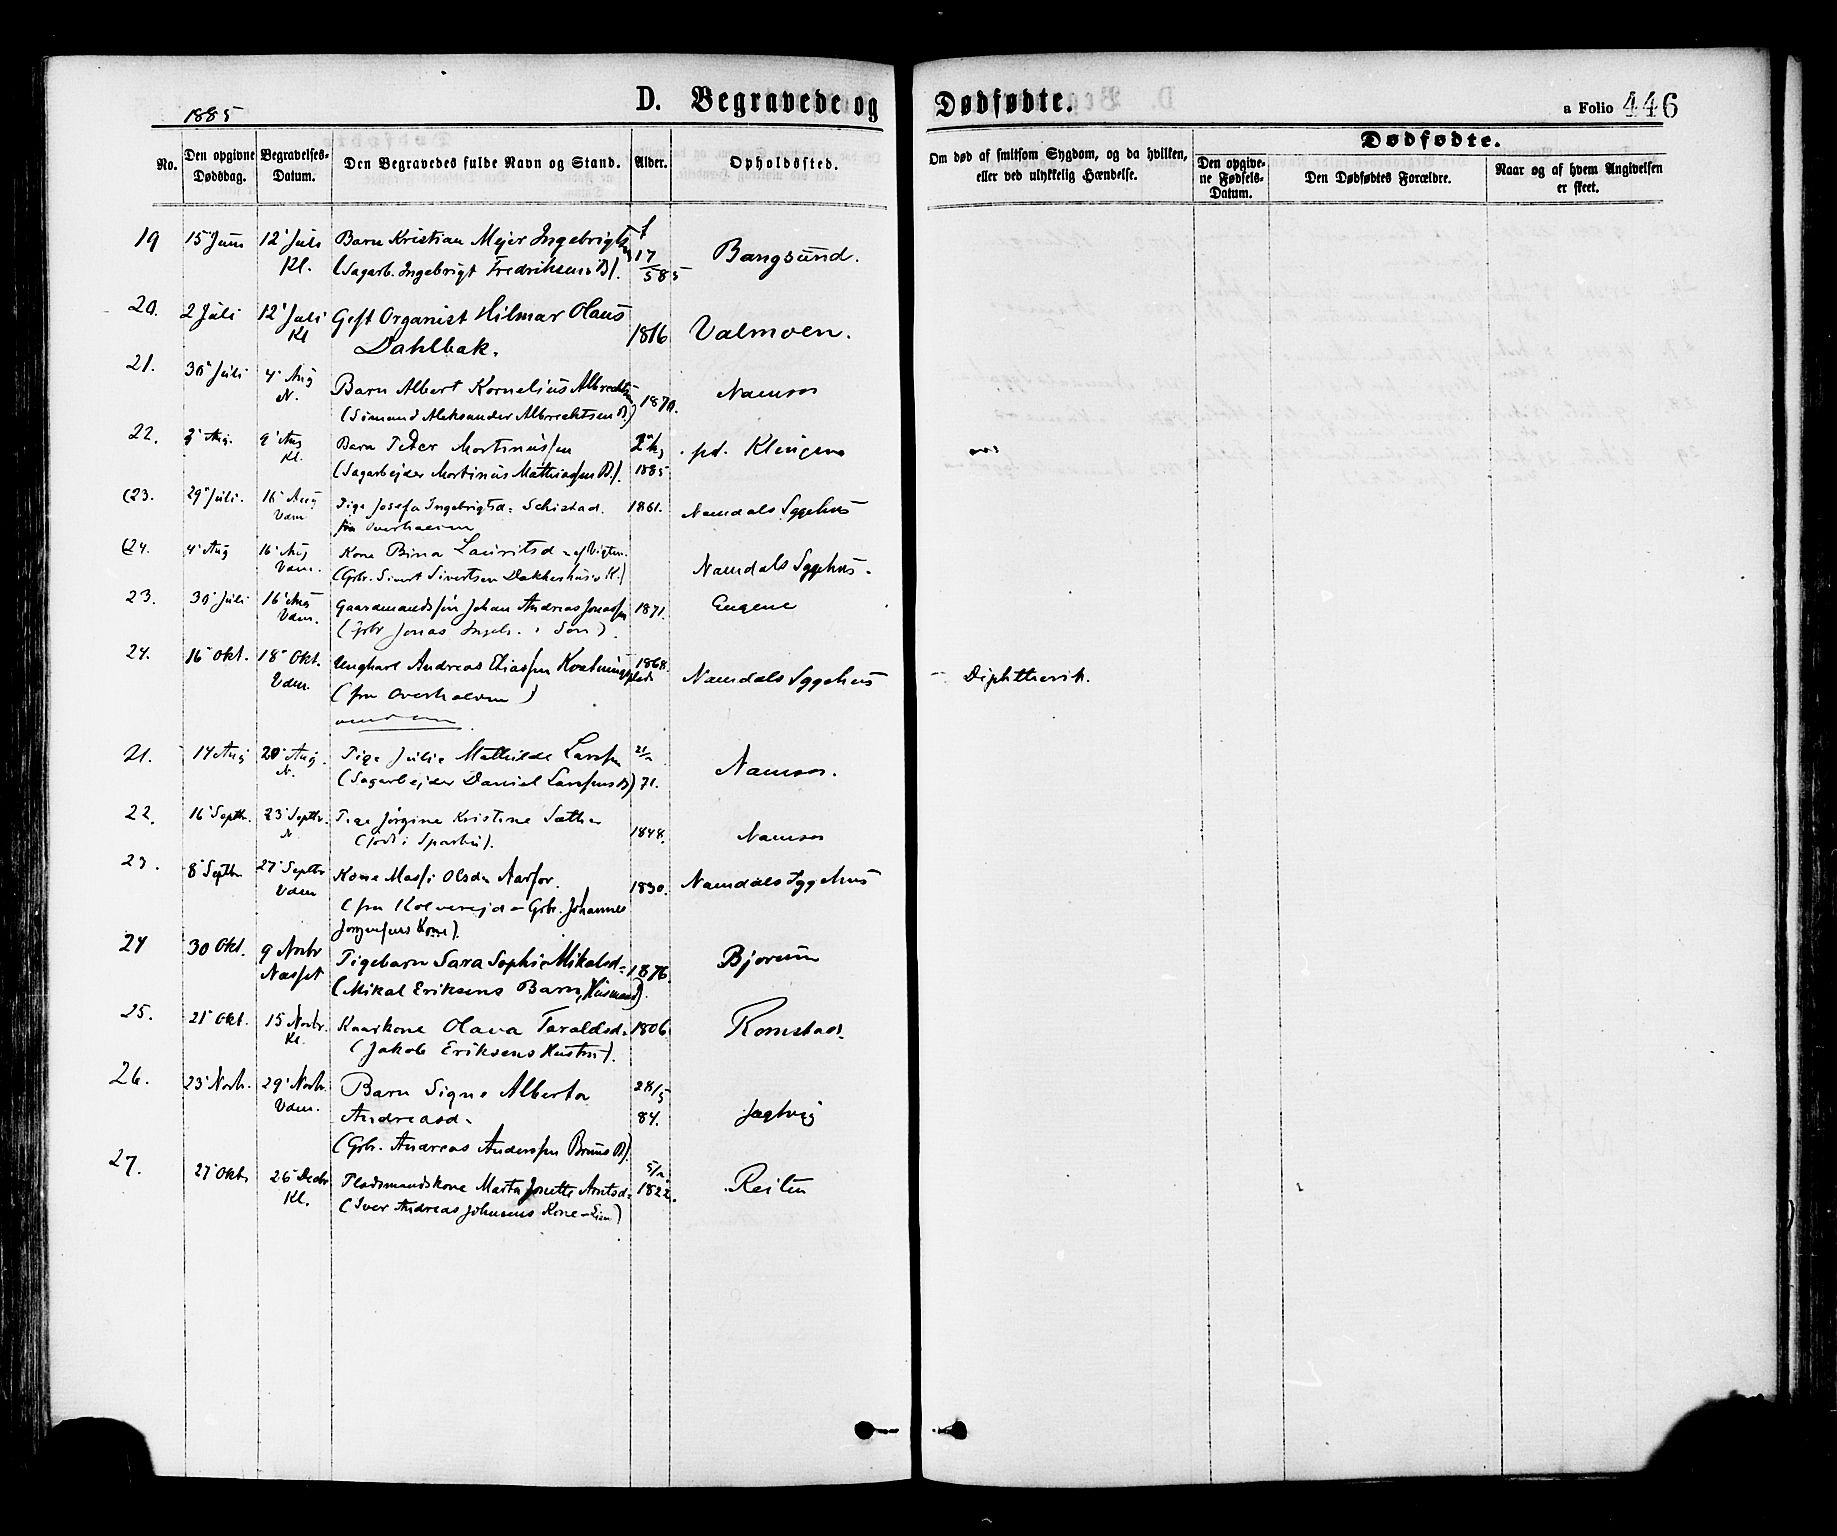 1885
D. Begravede og Dødfødte.
a Folio 446
No.
Den opgivne Dødsdag.
Begravelses-Datum.
Den Begravedes fulde Navn og Stand.
Alder.
Opholdssted.
Om død af smitsom Sygdom, og da hvilken, eller ved ulykkelig Hændelse.
Dødfødte.
Den opgivne Fødsels-Datum.
Den Dødfødtes Forældre.
Naar og af hvem Angivelsen er skeet.
19 15' Juni 12' Juli Barn Kristian Mejer Ingebrigts f 17/5 85 Bangsund.
Kl. (Sagarb. Ingebrigt Fredriksens B).
20. 2 Juli 12' Juli Gift Organist Hilmar Olaus 1816 Valmoen.
Kl Dahlbak.
21. 30' Juli 4' Aug Barn Albert Kornelius Albrechts 1870. Namsos
N. (Sømand Aleksander Albrechtsen B.)
22. Aug. 9' Aug Barn Peder Mortinussen pt. Klingen
Kl. (Sagarbejder Mortinus Mathiassen B.). 1885
(23. 29' Juli. 16' Aug Pige Josefa Ingebrigtsd. Schistad. 1861. Namdals Sygehus
Vem fra Overhalven
(24. 4' Aug 16' Aug Kone Bina Lauritsd - af Vigten. Namdals Sygehus.
Vem. (Gbr. Sivert Sivertsen K.)
23. 30' Juli 16' Aug Gaardmandssøn Johan Andreas Jonassen 1871. Engene
Vem. (Gbr Jonas Ingebr. Søn).
24. 16' Okt. 18' Okt. Ungkarl Andreas Eliassen 1868. Namdals Sygehus - Diphtherit.
Vem. (fra Overhalven)
21. 14 Aug 20' Aug. Pige Julie Mathilde Larsen Namsos.
N. (Sagarbejder Daniel Larsens B) 71.
22. 16' Septbr. 23' Septbr. Pige Jørgine Kristine Sæther 1848. Namsos
N (født i Sparbu).
23. 8' Septbr 27' Septbr Kone Masfi Olsdr Aarfor. 1830. Namdals Sygehus
Vem (fra Kolvereid - Gbr. Johannes
Jørgensens Kone).
24 30 Okt. 9 Novbr Pigebarn Sara Sophie Mikalsd. 1876. Bjørum
Næsset (Mikal Eriksens Barn, Husmand).
25. 21' Okt. 15 Novbr. Kaarkone Olava Taraldsd. 1806 Romstad.
Kl. (Jakob Eriksens Hustru).
26. 23' Novbr. 29' Novbr. Barn Signe Alberta 28/5 Jagtvig
Vem. Andreasd. 84.
(Gbr. Andreas Anderssen Bruns B).
27. 27' Okt. 26' Decbr Pladsmandskone Marta Jonette Arntsd. 1822. Reiten
Kl. (Iver Andreas Johnsens Kone)